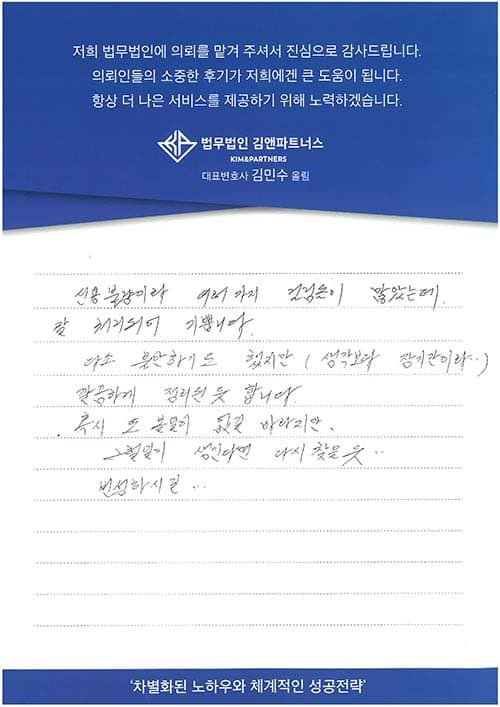 저희 법무법인에 의뢰를 맡겨 주셔서 진심으로 감사드립니다.
의뢰인들의 소중한 후기가 저희에겐 큰 도움이 됩니다.
항상 더 나은 서비스를 제공하기 위해 노력하겠습니다.
법무법인 김앤파트너스
KIM&PARTNERS
대표변호사 김민수 올림
신용불량이라 여러가지 걸림돌이 많았는데
잘 처리되어 기쁩니다.
다소 불안하기도 했지만 (생각보다 장기간이라..)
깔끔하게 정리된 듯 합니다.
혹시 또 볼일이 없길 바라지만.
그럴일이 생긴다면 다시 찾을 듯..
번성하시길...
'차별화된 노하우와 체계적인 성공전략'